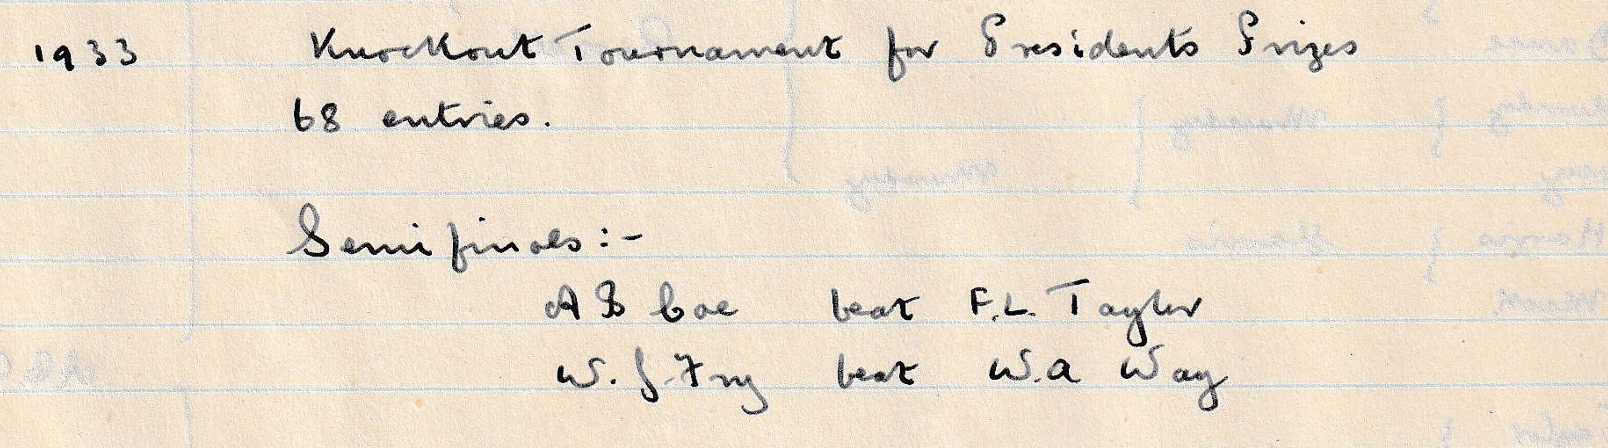 1933 Knockout Tournament for Presidents Prizes
68 entries.
Semifinals:-
A B Coe beat F.L. Taylor
W. J. Fry beat W.A Way